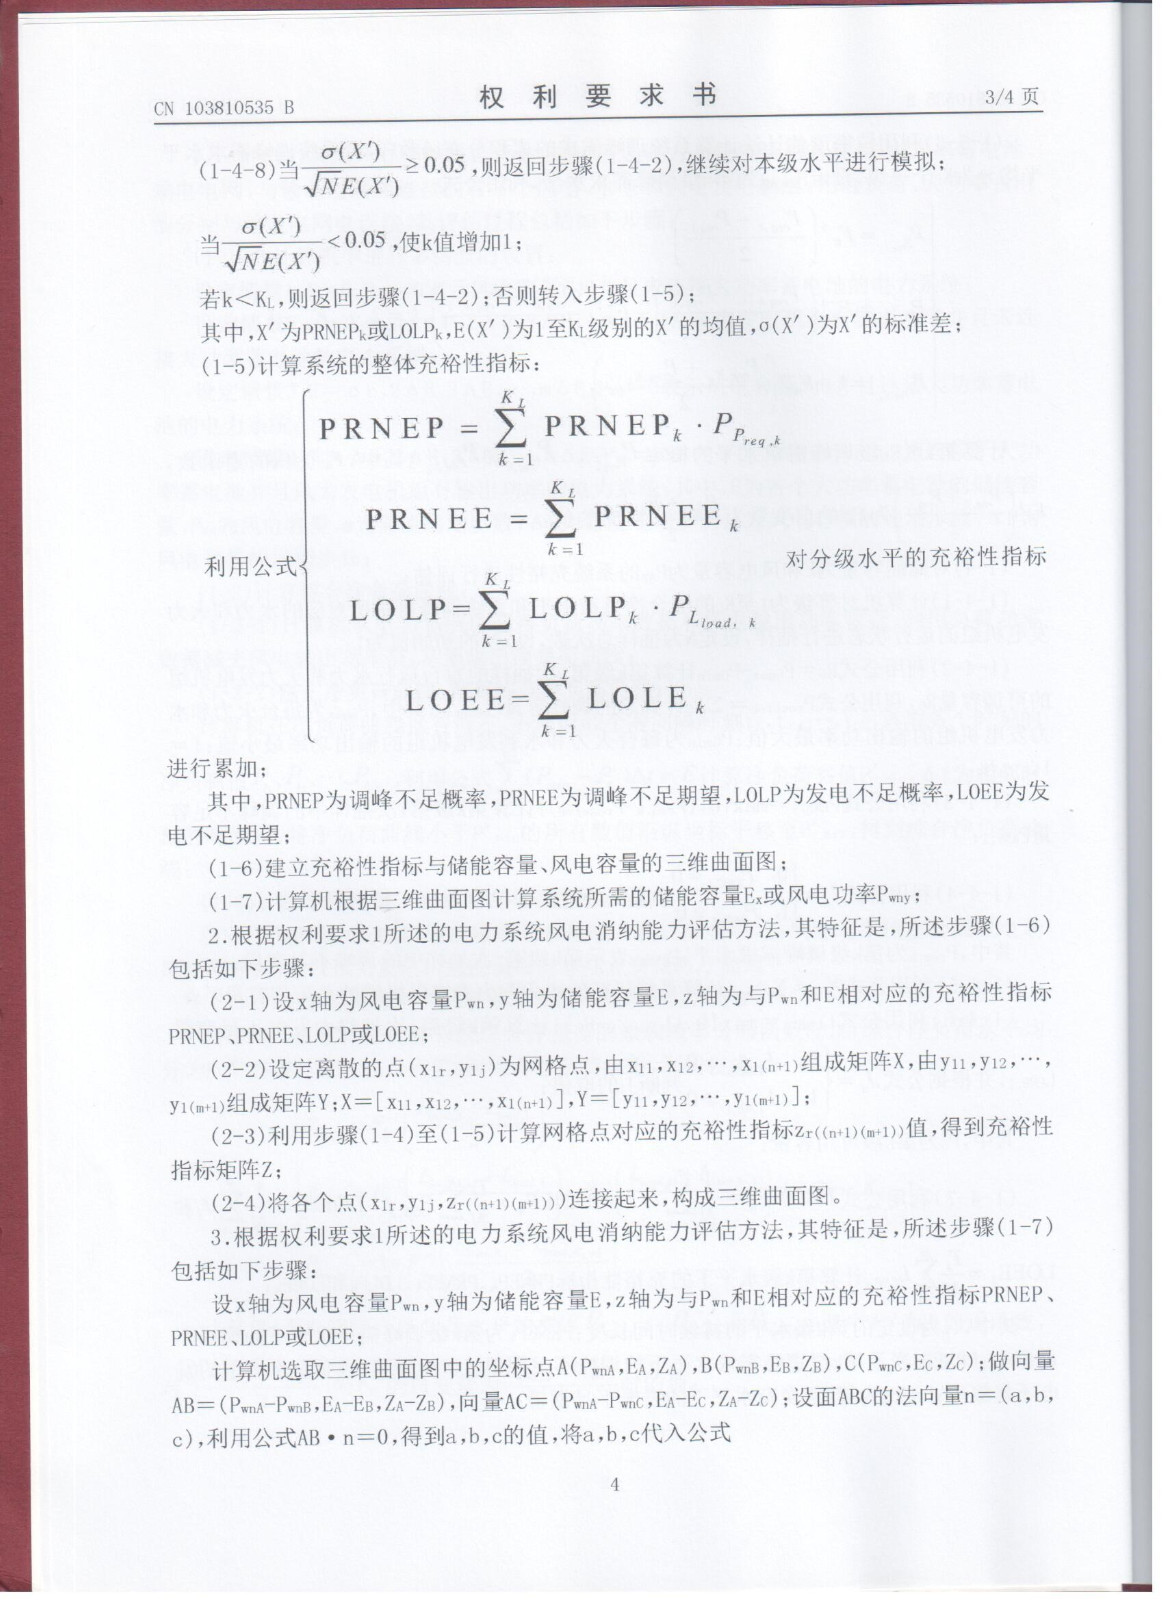 CN 103810535 B 权利要求书 3/4 页
(1-4-8)当 σ(X′)/√NE(X′) ≥0.05,则返回步骤(1-4-2),继续对本级水平进行模拟;
当 σ(X′)/√NE(X′) <0.05,使k值增加1;
若k＜KL,则返回步骤(1-4-2);否则转入步骤(1-5);
其中,X′为PRNEPk或LOLPk,E(X′)为1至KL级别的X′的均值,σ(X′)为X′的标准差;
(1-5)计算系统的整体充裕性指标:
PRNEP = ∑(k=1→KL) PRNEPk · PPreq,k
PRNEE = ∑(k=1→KL) PRNEEk
利用公式{ 对分级水平的充裕性指标
LOLP= ∑(k=1→KL) LOLPk · PLload,k
LOEE= ∑(k=1→KL) LOLEk
进行累加;
其中,PRNEP为调峰不足概率,PRNEE为调峰不足期望,LOLP为发电不足概率,LOEE为发
电不足期望;
(1-6)建立充裕性指标与储能容量、风电容量的三维曲面图;
(1-7)计算机根据三维曲面图计算系统所需的储能容量Ex或风电功率Pwny;
2.根据权利要求1所述的电力系统风电消纳能力评估方法,其特征是,所述步骤(1-6)
包括如下步骤:
(2-1)设x轴为风电容量Pwn,y轴为储能容量E,z轴为与Pwn和E相对应的充裕性指标
PRNEP、PRNEE、LOLP或LOEE;
(2-2)设定离散的点(x1r,y1j)为网格点,由x11,x12,…,x1(n+1)组成矩阵X,由y11,y12,…,
y1(m+1)组成矩阵Y;X＝[x11,x12,…,x1(n+1)],Y＝[y11,y12,…,y1(m+1)];
(2-3)利用步骤(1-4)至(1-5)计算网格点对应的充裕性指标zr((n+1)(m+1))值,得到充裕性
指标矩阵Z;
(2-4)将各个点(x1r,y1j,zr((n+1)(m+1)))连接起来,构成三维曲面图。
3.根据权利要求1所述的电力系统风电消纳能力评估方法,其特征是,所述步骤(1-7)
包括如下步骤:
设x轴为风电容量Pwn,y轴为储能容量E,z轴为与Pwn和E相对应的充裕性指标PRNEP、
PRNEE、LOLP或LOEE;
计算机选取三维曲面图中的坐标点A(PwnA,EA,ZA),B(PwnB,EB,ZB),C(PwnC,EC,ZC);做向量
AB＝(PwnA-PwnB,EA-EB,ZA-ZB),向量AC＝(PwnA-PwnC,EA-EC,ZA-ZC);设面ABC的法向量n＝(a,b,
c),利用公式AB•n＝0,得到a,b,c的值,将a,b,c代入公式
4